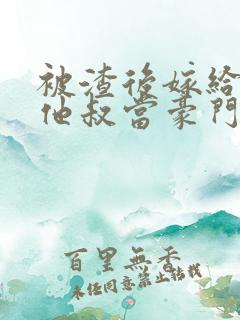 被渣後嫁給
他叔當豪門
百里無香
未任同意禁止转载